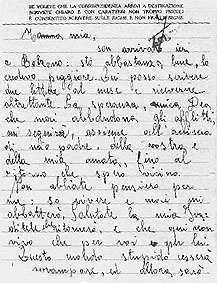 SE VOLETE CHE LA CORRISPONDENZA ARRIVI A DESTINAZIONE
SCRIVETE CHIARO E CON CARATTERI NON TROPPO PICCOLI
E CONSENTITO SCRIVERE SULLE RIGHE E NON FRA LE RIGHE
Mamma mia,
son arrivato ieri
a Bolzano: sto abbastanza bene, lo
credevo peggiore. Qui posso scrivere
due lettere al mese e riceverne
altrettante. La speranza, amica Dea,
che mai abbandona gli afflitti,
mi seguirà, assieme all'amicizia
di mio padre della vostra e
della mia amata, fino al
ritorno che spero vicino.
Non abbiate pensiero per
me: so vivere e mai mi
abbatterò, Salutate la mia
ditele che ritornerò e che ogni mio
vivo che per voi e per lei.
Questo maledetto stupido cesserà
allora sarò